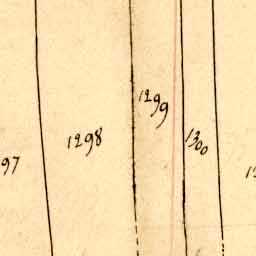 1299
1298
1300
97